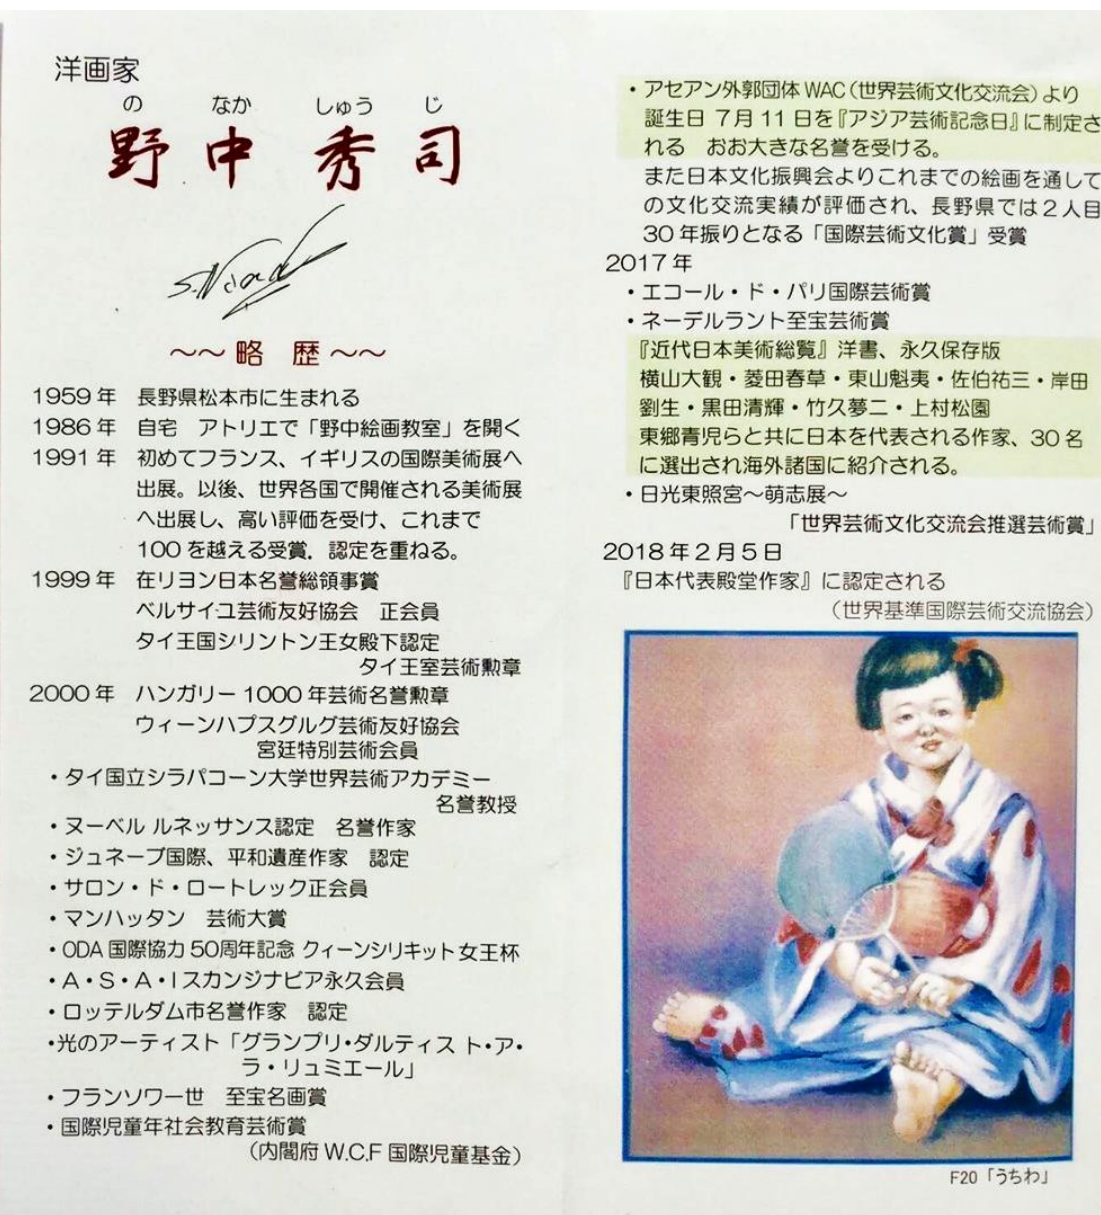 洋画家
の なか しゅう じ
野中秀司
～～略 歴～～
1959年 長野県松本市に生まれる
1986年 自宅 アトリエで「野中絵画教室」を開く
1991年 初めてフランス、イギリスの国際美術展へ
出展。以後、世界各国で開催される美術展
へ出展し、高い評価を受け、これまで
100を越える受賞．認定を重ねる。
1999年 在リヨン日本名誉総領事賞
ベルサイユ芸術友好協会 正会員
タイ王国シリントン王女殿下認定
タイ王室芸術勲章
2000年 ハンガリー1000年芸術名誉勲章
ウィーンハプスグルグ芸術友好協会
宮廷特別芸術会員
・タイ国立シラパコーン大学世界芸術アカデミー
名誉教授
・ヌーベル ルネッサンス認定 名誉作家
・ジュネーブ国際、平和遺産作家 認定
・サロン・ド・ロートレック正会員
・マンハッタン 芸術大賞
・ODA国際協力50周年記念 クィーンシリキット女王杯
・A・S・A・Iスカンジナビア永久会員
・ロッテルダム市名誉作家 認定
・光のアーティスト「グランプリ・ダルティスト・ア・
ラ・リュミエール」
・フランソワ一世 至宝名画賞
・国際児童年社会教育芸術賞
（内閣府 W.C.F 国際児童基金）
・アセアン外郭団体WAC（世界芸術文化交流会）より
誕生日 7月11日を『アジア芸術記念日』に制定さ
れる おお大きな名誉を受ける。
また日本文化振興会よりこれまでの絵画を通して
の文化交流実績が評価され、長野県では2人目
30年振りとなる「国際芸術文化賞」受賞
2017年
・エコール・ド・パリ国際芸術賞
・ネーデルラント至宝芸術賞
『近代日本美術総覧』洋書、永久保存版
横山大観・菱田春草・東山魁夷・佐伯祐三・岸田
劉生・黒田清輝・竹久夢二・上村松園
東郷青児らと共に日本を代表される作家、30名
に選出され海外諸国に紹介される。
・日光東照宮～萌志展～
「世界芸術文化交流会推選芸術賞」
2018年2月5日
『日本代表殿堂作家』に認定される
（世界基準国際芸術交流協会）
F20「うちわ」